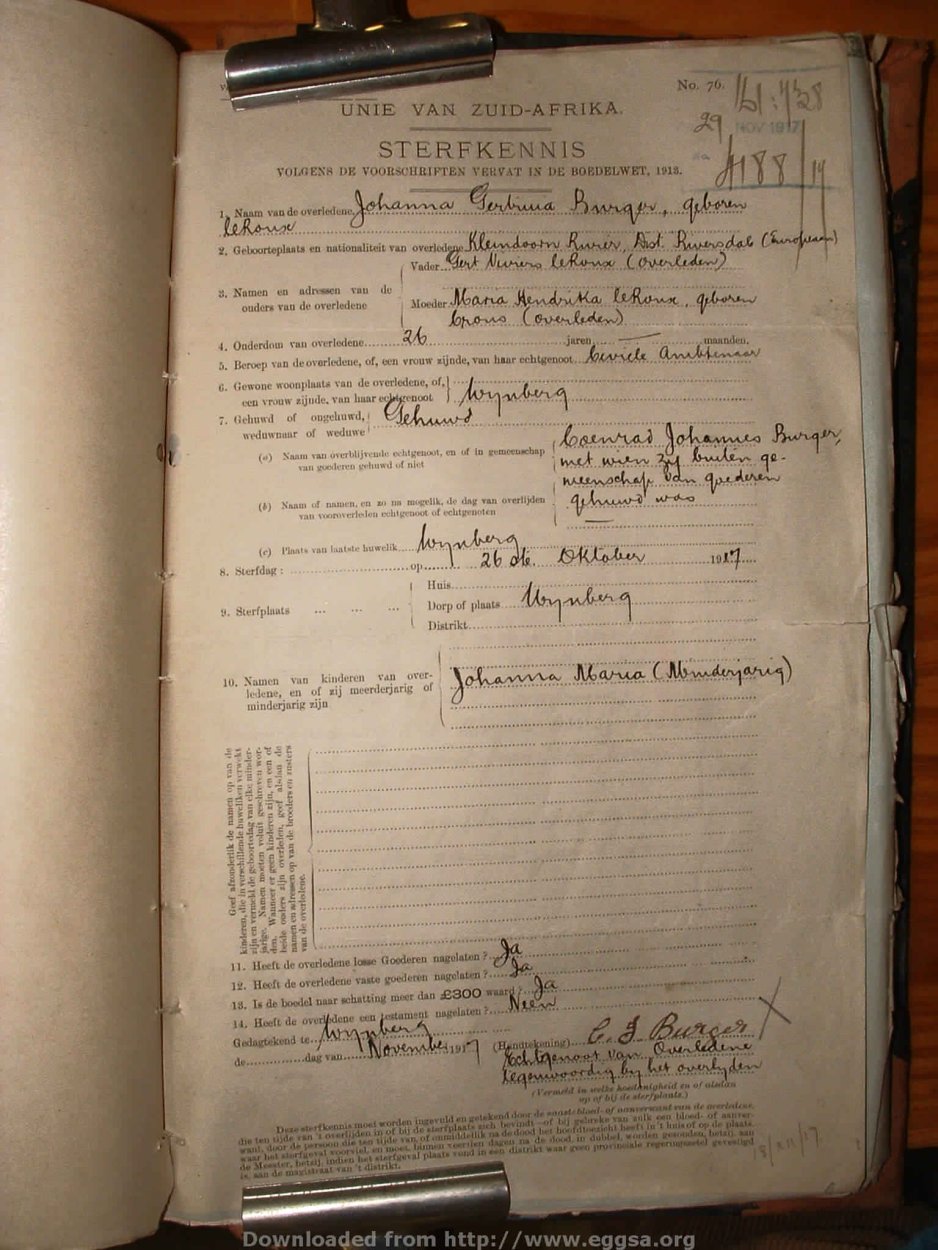 No. 76.
29 NOV 1917
4188/17
UNIE VAN ZUID-AFRIKA.
STERFKENNIS
VOLGENS DE VOORSCHRIFTEN VERVAT IN DE BOEDELWET, 1913.
1. Naam van de overledene Johanna Gertruia Burger, geboren
leRoux
2. Geboorteplaats en nationaliteit van overledene Kleindoorn Rivier, Dist. Riversdale (European)
Vader Gert Viviers leRoux (overleden)
3. Namen en adressen van de ouders van de overledene
Moeder Maria Hendrika leRoux, geboren
Crous (overleden)
4. Ouderdom van overledene 26 jaren — maanden.
5. Beroep van de overledene, of, een vrouw zijnde, van haar echtgenoot Civiele Ambtenaar
6. Gewone woonplaats van de overledene, of,
een vrouw zijnde, van haar echtgenoot Wynberg
7. Gehuwd of ongehuwd,
weduwnaar of weduwe Gehuwd
(a) Naam van overblijvende echtgenoot, en of in gemeenschap
van goederen gehuwd of niet
Coenrad Johannes Burger,
met wien zij buiten ge-
meenschap van goederen
gehuwd was
(b) Naam of namen, en zo na mogelik, de dag van overlijden
van vooroverleden echtgenoot of echtgenoten
—
(c) Plaats van laatste huwelik Wynberg
8. Sterfdag: op 26ste Oktober 1917
9. Sterfplaats ... ... ...
Huis
Dorp of plaats Wynberg
Distrikt
10. Namen van kinderen van over-
ledene, en of zij meerderjarig of
minderjarig zijn
Johanna Maria (Minderjarig)
Geef afzonderlik de namen op van de
kinderen, die in verschillende huweliken verwekt
zijn en vermeld de geboortedag van elke minder-
jarige. Namen moeten voluit geschreven wor-
den. Wanneer er geen kinderen zijn, en een of
beide ouders zijn overleden, geef alsdan de
namen en adressen op van de broeders en zusters
van de overledene.
11. Heeft de overledene losse Goederen nagelaten? Ja
12. Heeft de overledene vaste goederen nagelaten? Ja
13. Is de boedel naar schatting meer dan £300 waard? Ja
14. Heeft de overledene een testament nagelaten? Neen
Gedagtekend te Wynberg
de dag van November 1917
(Handtekening) C. J. Burger
Echtgenoot van Overledene
tegenwoordig by het overlyden
(Vermeld in welke hoedanigheid en of alsdan
op of bij de sterfplaats.)
Deze sterfkennis moet worden ingevuld en getekend door de naaste bloed- of aanverwant van de overledene,
die ten tijde van 't overlijden in of bij de sterfplaats zich bevindt—of bij gebreke van zulk een bloed- of aanver-
want, door de persoon die ten tijde van of onmiddellik na de dood het hoofdtoezicht heeft in 't huis of op de plaats,
waar het sterfgeval voorviel, en moet, binnen veertien dagen na de dood, in dubbel, worden gezonden, hetzij, aan
de Meester, hetzij, indien het sterfgeval plaats vond in een distrikt waar geen provinciale regeringszetel gevestigd
is, aan de magistraat van 't distrikt.
18/XII/17
Downloaded from http://www.eggsa.org